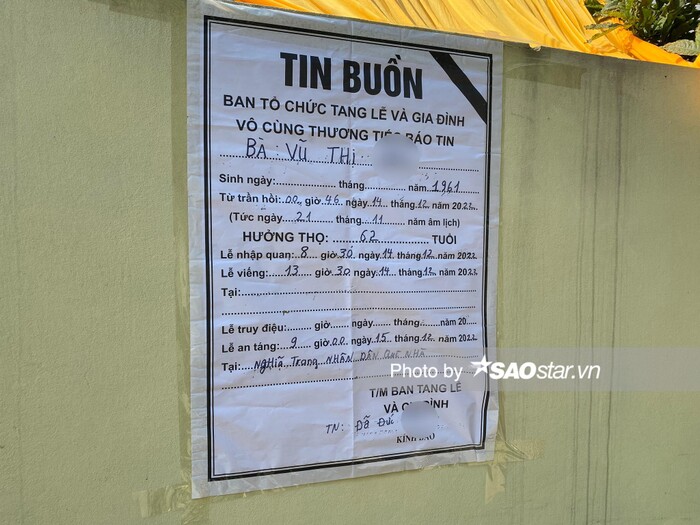 TIN BUỒN
BAN TỔ CHỨC TANG LỄ VÀ GIA ĐÌNH
VÔ CÙNG THƯƠNG TIẾC BÁO TIN
BÀ: VŨ THỊ
Sinh ngày:............ tháng............ năm 1961
Từ trần hồi: 00 giờ 46 ngày 14 tháng 12 năm 2022
(Tức ngày 21 tháng 11 năm âm lịch)
HƯỞNG THỌ: 62 TUỔI
Lễ nhập quan: 8 giờ 30 ngày 14 tháng 12 năm 2022
Lễ viếng: 13 giờ 30 ngày 14 tháng 12 năm 2022
Tại:
Lễ truy điệu:........ giờ...... ngày...... tháng........ năm 20....
Lễ an táng: 9 giờ 00 ngày 15 tháng 12 năm 2022
Tại: Nghĩa Trang NHÂN DÂN QUÊ NHÀ
Photo by SAOstar.vn
T/M BAN TANG LỄ
VÀ GIA ĐÌNH
TN: Đỗ Đức
KÍNH BÁO